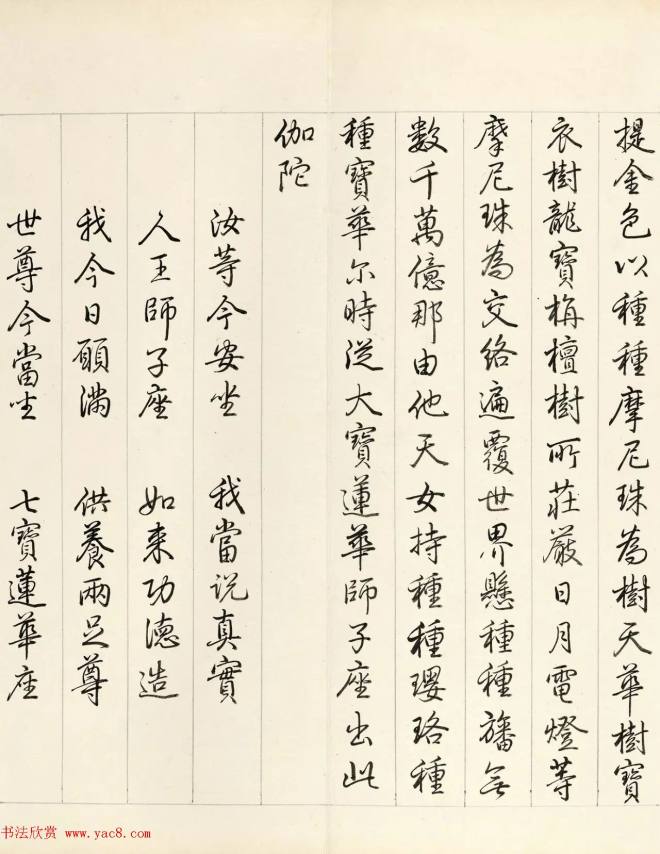 提金色以種種摩尼珠為樹天華樹寶
衣樹龍寶栴檀樹所莊嚴日月電燈等
摩尼珠為交絡遍覆世界懸種種旛無
数千萬億那由他天女持種種瓔珞種
種寶華尔時從大寶蓮華師子座出此
伽陀
汝等今安坐 我當说真實
人王師子座 如来功德造
我今日願滿 供養兩足尊
世尊今當坐 七寶蓮華座
书法欣赏 www.yac8.com